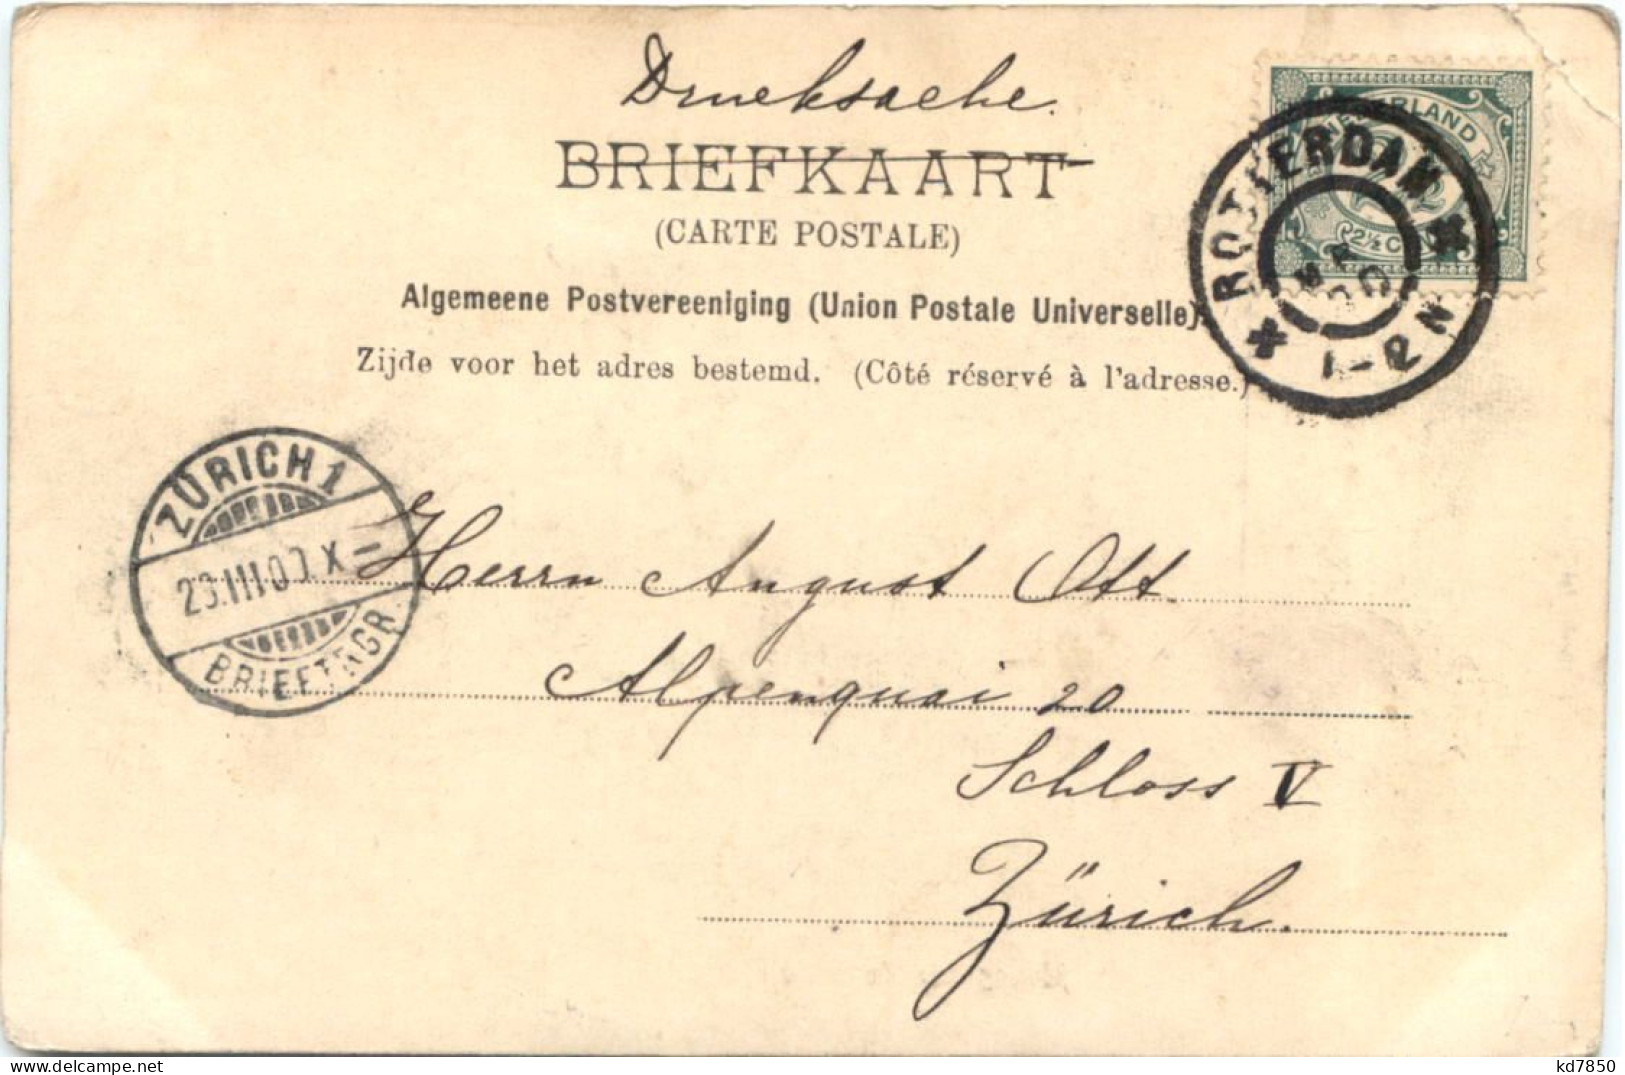 Drucksache.
BRIEFKAART
(CARTE POSTALE)
Algemeene Postvereeniging (Union Postale Universelle).
Zijde voor het adres bestemd. (Côté réservé à l'adresse.)
NEDERLAND
2½ C
ROTTERDAM
1-2 N
ZÜRICH 1
BRIEFTRGR.
Herrn August Ott.
Alpenquai 20
Schloss V
Zürich.
kd7850